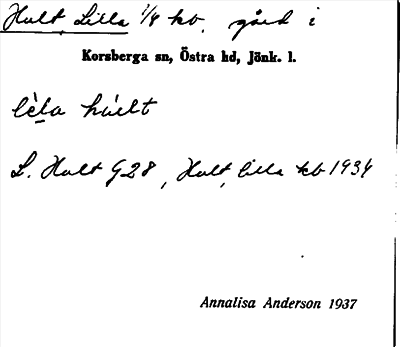 Hult, Lilla 1/4 kb, gård i
Korsberga sn, Östra hd, Jönk. l.
lèla húlt
L. Hult G28, Hult, lilla kb 1934
Annalisa Anderson 1937